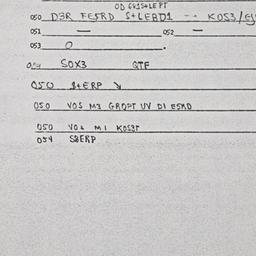 050 D3R FESRD S+LEBD1 -- KOS3/
051 — 052 —
053 O .
054 SOX3 GTF
050 S+ERP
050 VOS M3 GROPT UV DI ESRD
050 VO& MI KOS3T
054 S&ERP